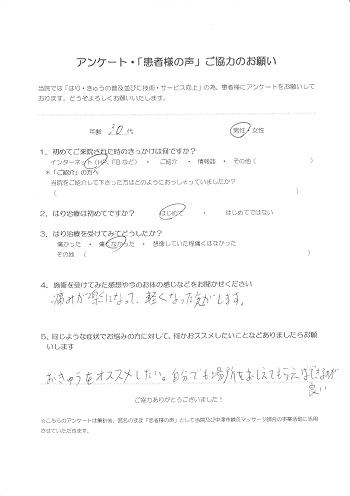 アンケート・「患者様の声」ご協力のお願い
当院では「はり・きゅうの普及並びに技術・サービス向上」の為、患者様にアンケートをお願いして
おります、どうぞよろしくお願いいたします。
年齢 30代 男性・女性
1、初めてご来院された時のきっかけは何ですか?
インターネット(HP、FBなど) ・ ご紹介 ・ 情報誌 ・ その他( )
*「ご紹介」の方へ
当院をご紹介して下さった方はどのようにおっしゃっていましたか?
( )
2、はり治療は初めてですか? はじめて ・ はじめてではない
3、はり治療を受けてみてどうしたか?
痛かった ・ 痛くなかった ・ 想像していた程痛くはなかった
その他( )
4、施術を受けてみた感想や今のお体の感じなどをお聞かせください
痛みが楽になって、軽くなった気がします。
5、同じような症状でお悩みの方に対して、何かおススメしたいことなどありましたらお願
いします
おきゅうをオススメしたい。自分でも場所をおしえてもらえばできますが
良い
ご協力ありがとうございました!
☆こちらのアンケートは集計後、匿名のまま「患者様の声」として当院及び中津市鍼灸マッサージ師会の事業活動に活用
させていただきます。